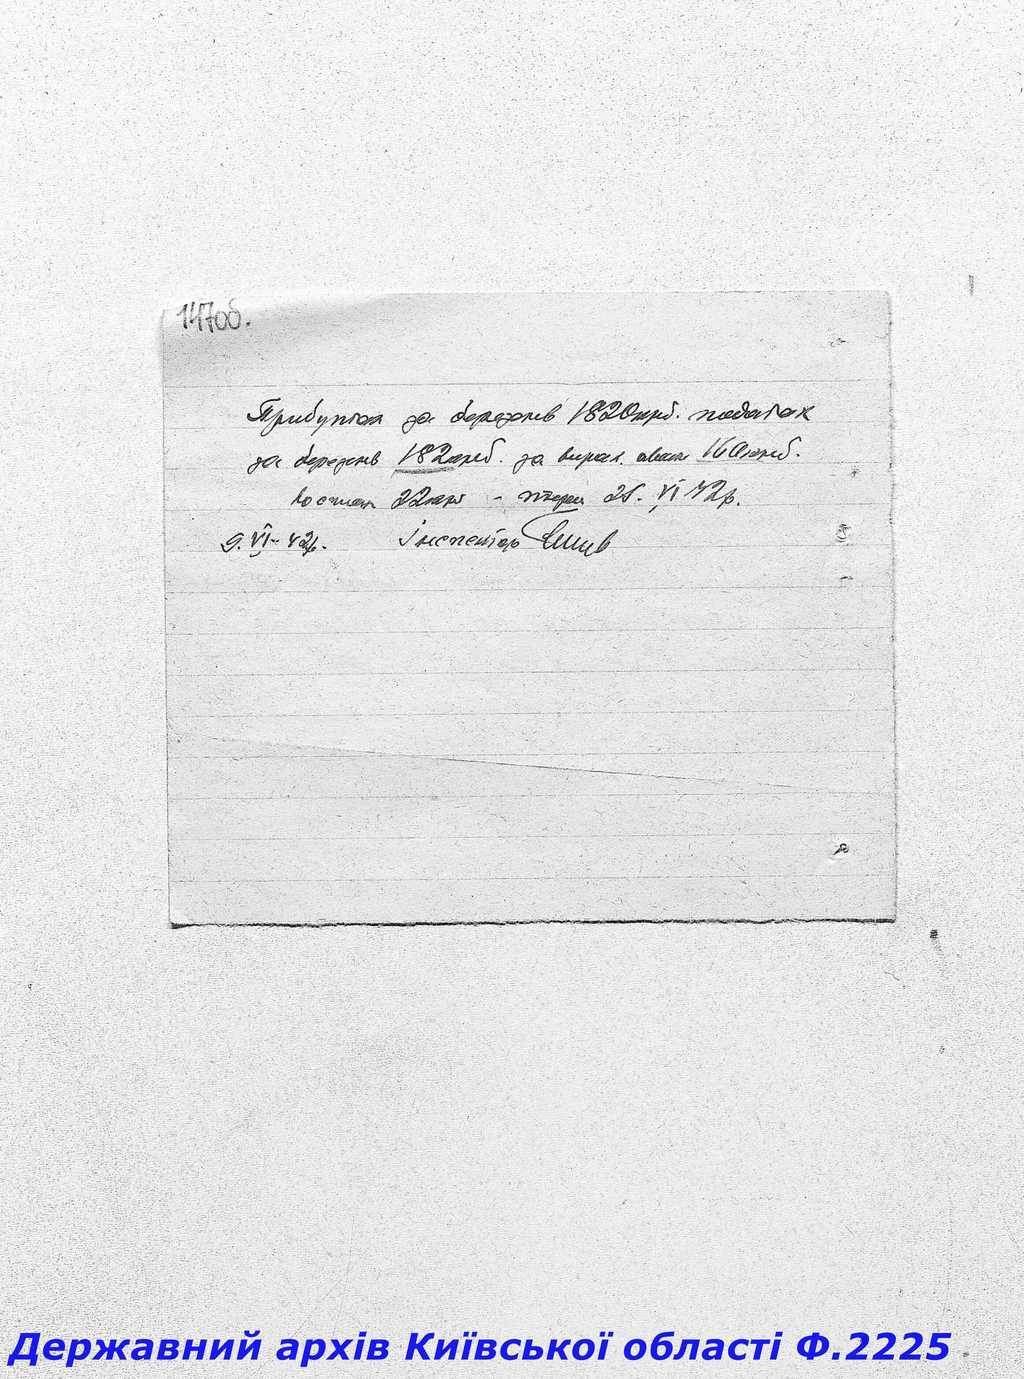 147об.
Прибуток за березень 1820крб. податок
за березень 182крб. за вирах. аванс 160крб.
22крб - 25. VI 42р.
9. VI - 42р. Інспектор
Державний архів Київської області Ф.2225